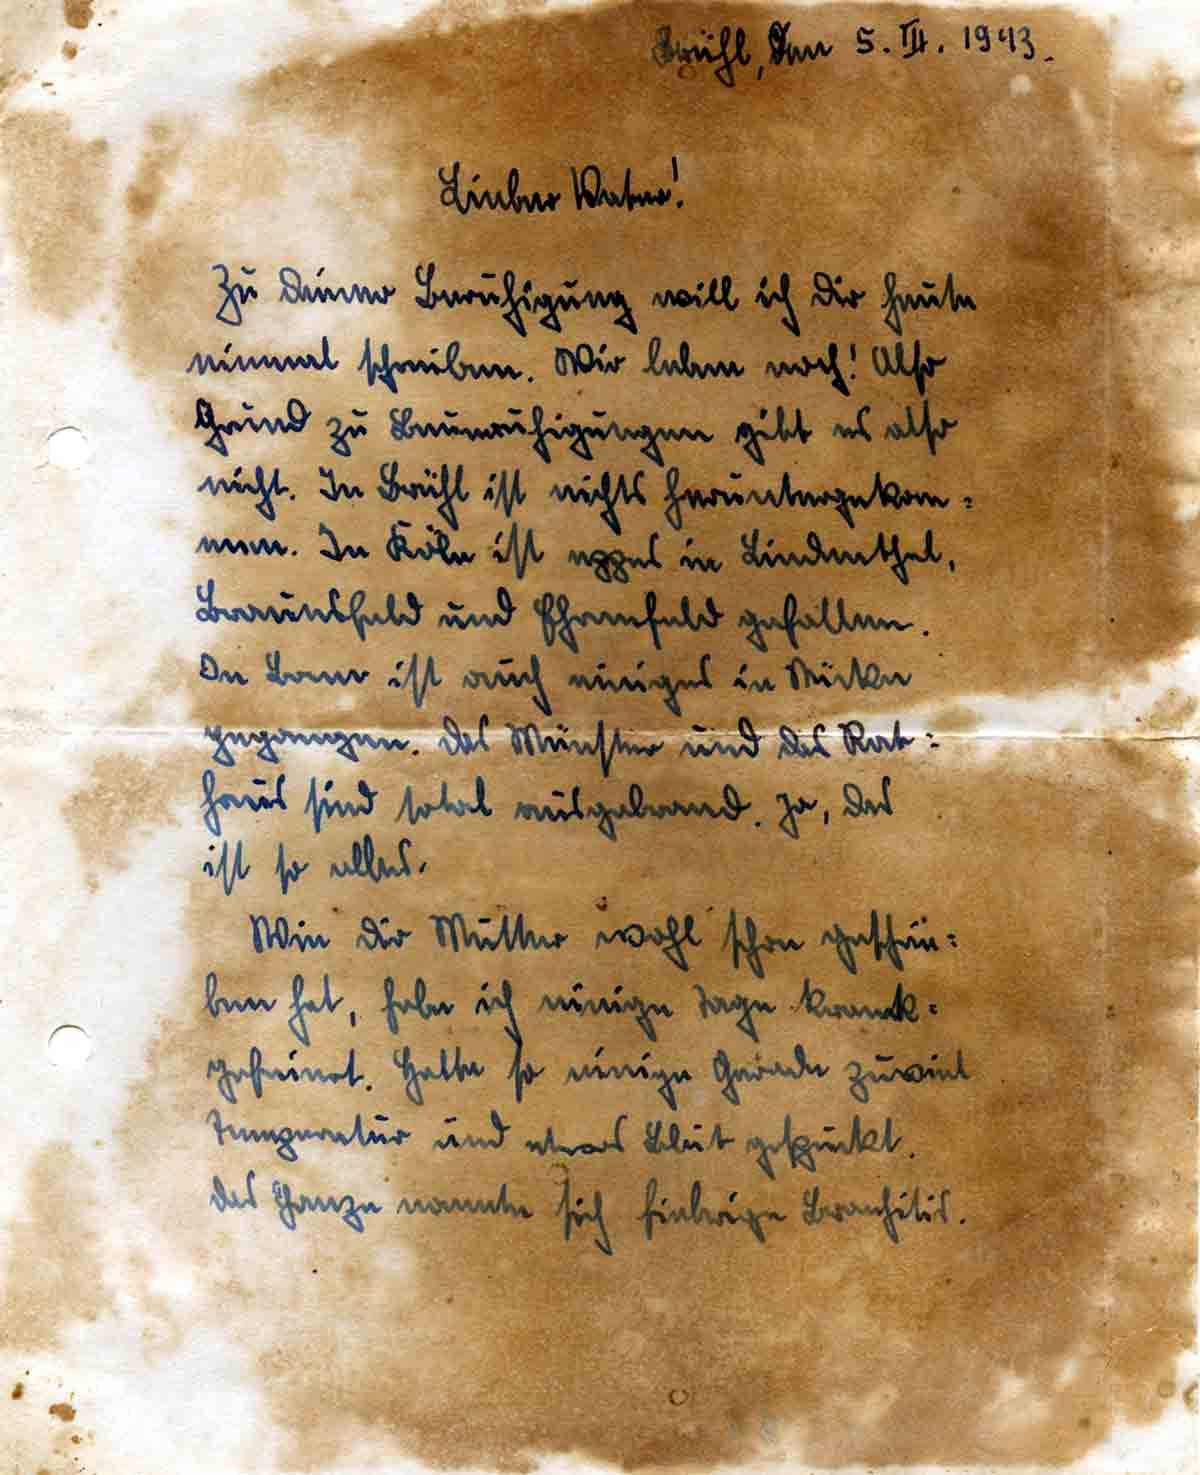 Brühl, den 5. III. 1943.
Lieber Vater!
Zu deiner Beruhigung will ich dir heute
einmal schreiben. Wir leben noch! Also
Grund zu Beunruhigungen gibt es also
nicht. In Brühl ist nichts heruntergekom=
men. In Köln ist eppes in Lindenthal,
Braunsfeld und Ehrenfeld gefallen.
In Bonn ist auch einiges in
gegangen. Das Münster und das Rat=
haus sind total ausgebrand. Ja, das
ist so alles.
Wie dir Mutter wohl schon geschrie=
ben hat, habe ich einige Tage krank=
gefeiert. Hatte so einige Gerade zuviel
Temperatur und etwas Blut gespuckt.
Das Ganze nannte sich fiebrige Bronhitis.